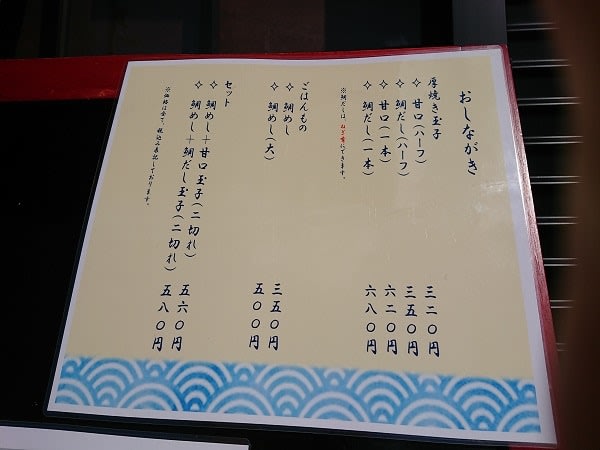 おしながき
厚焼き玉子
✧ 甘口(ハーフ) 三二〇円
✧ 鯛だし(ハーフ) 三五〇円
✧ 甘口(一本) 六二〇円
✧ 鯛だし(一本) 六八〇円
※鯛だしは、ねぎ有にできます。
ごはんもの
✧ 鯛めし 三五〇円
✧ 鯛めし(大) 五〇〇円
セット
✧ 鯛めし+甘口玉子(二切れ) 五六〇円
✧ 鯛めし+鯛だし玉子(二切れ) 五八〇円
※価格は全て、税込み表記しております。